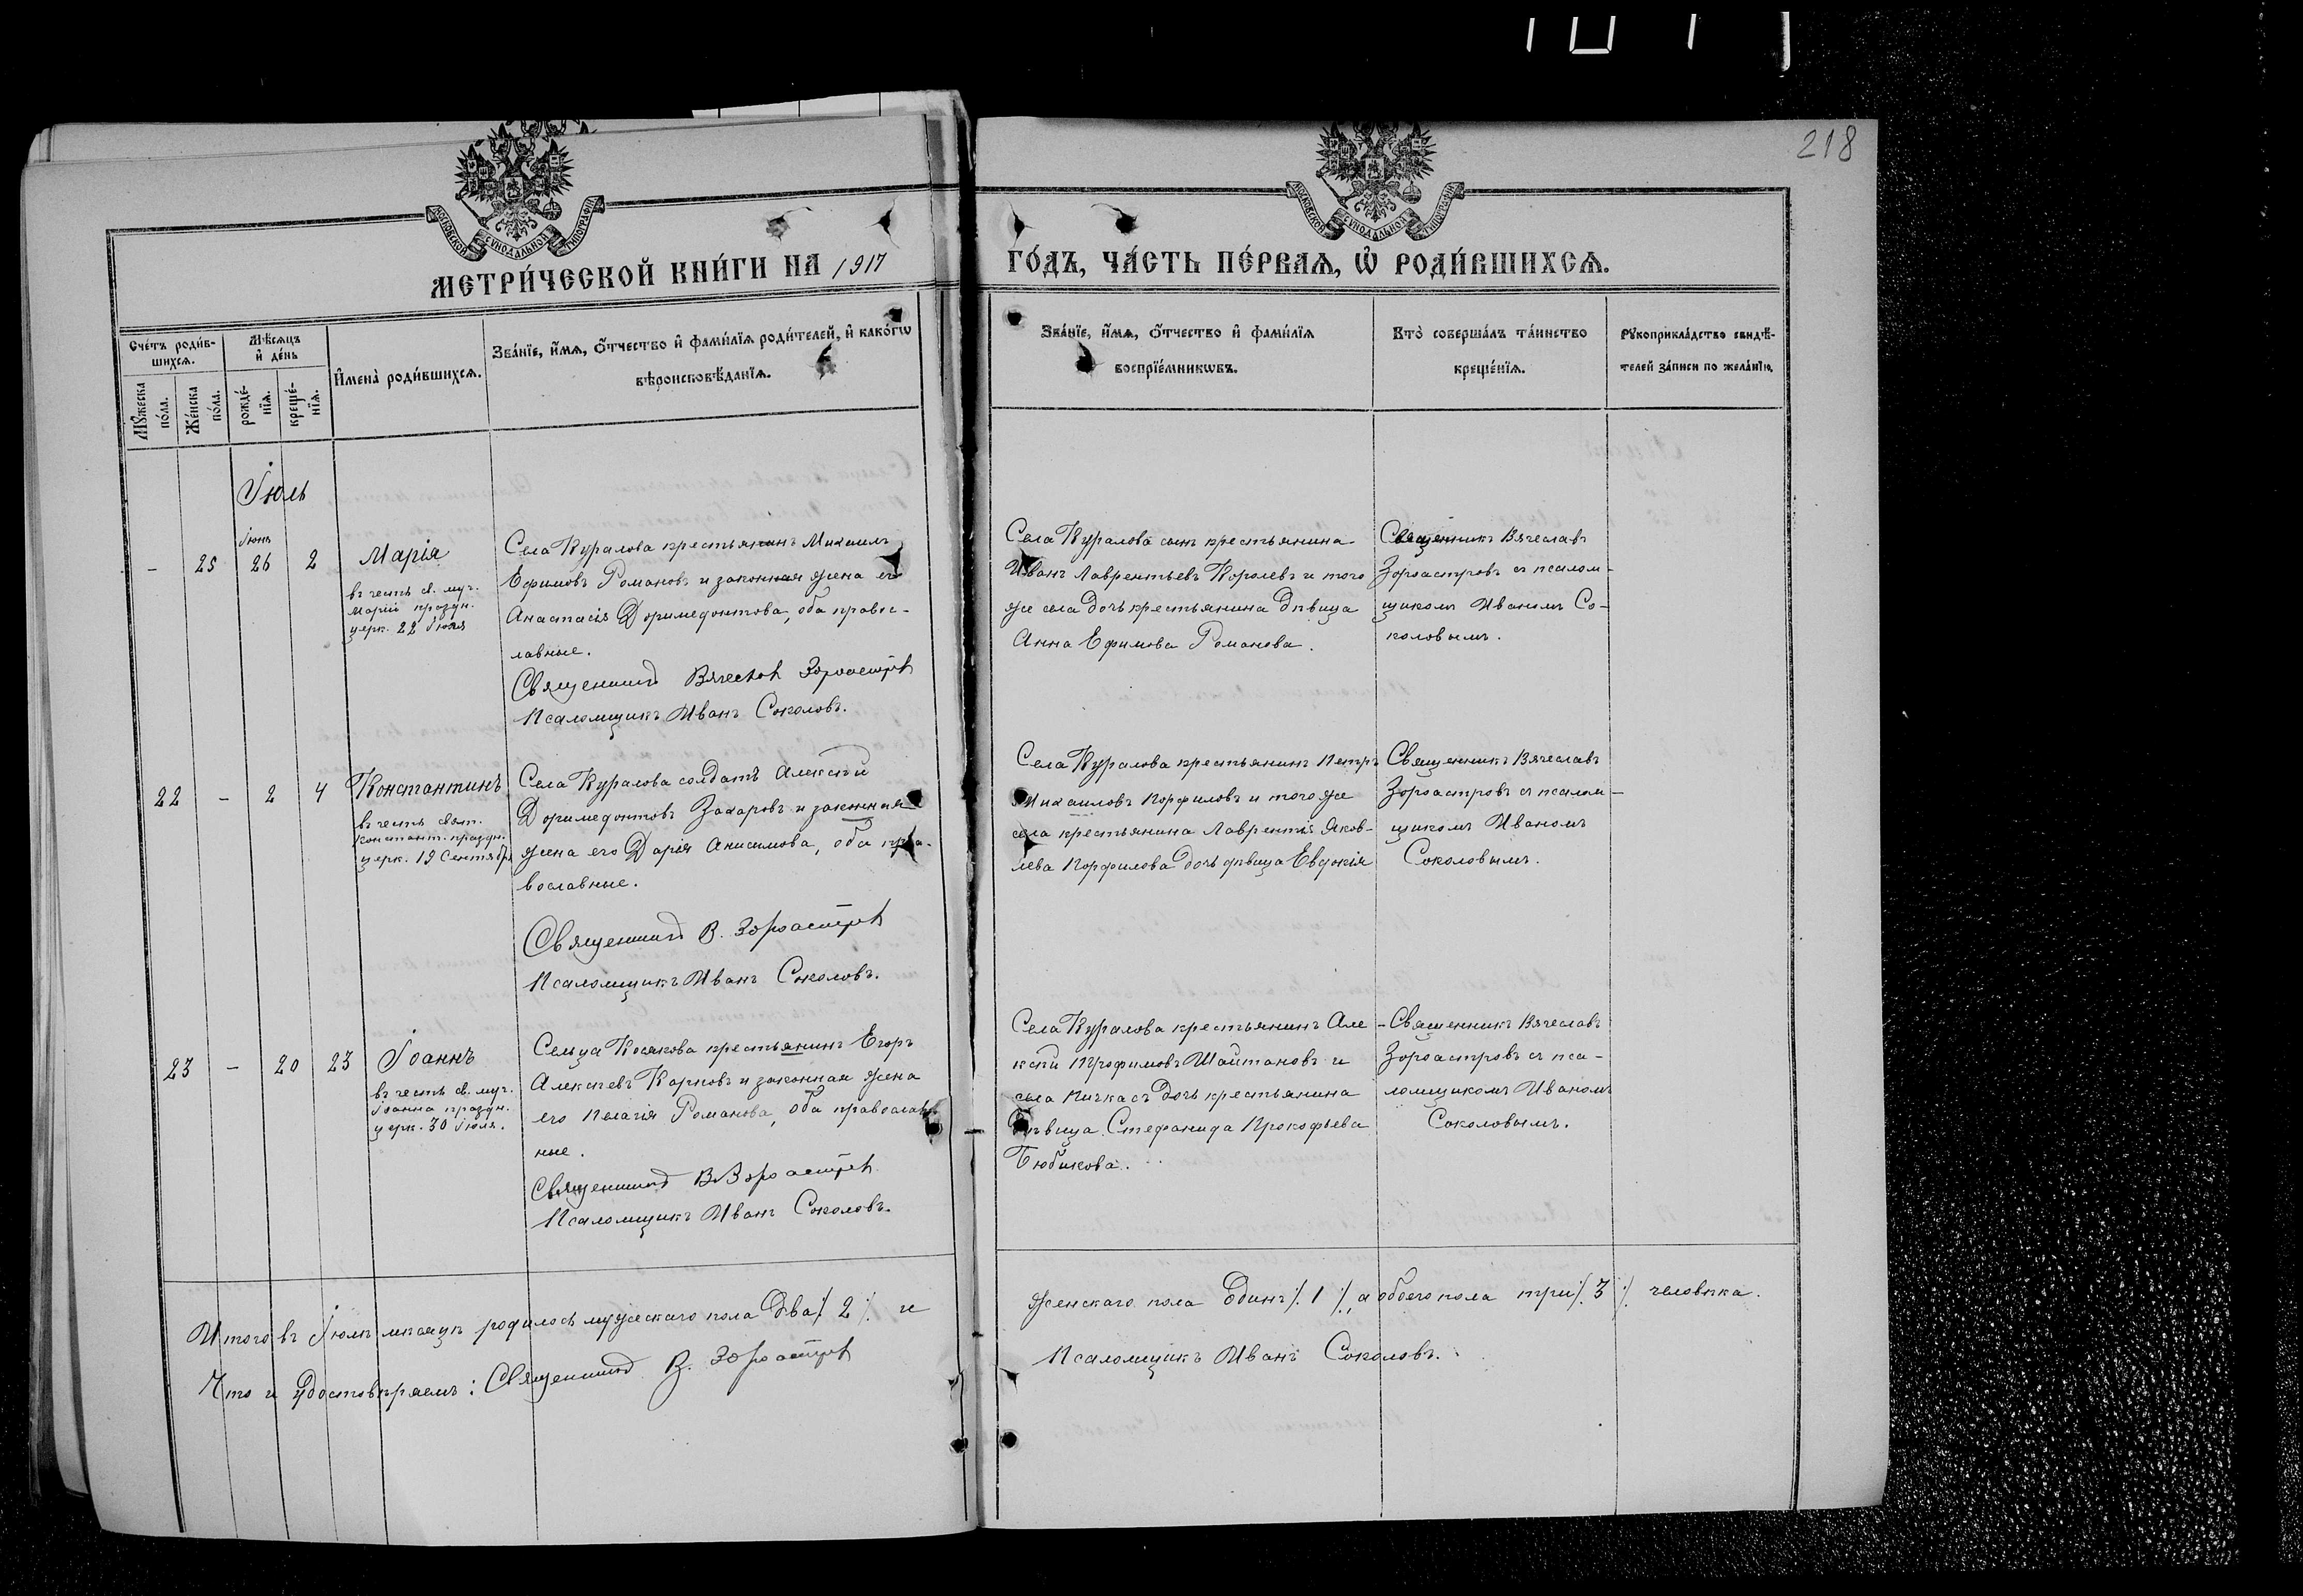 218
МОСКОВСКОЙ СѴНОДАЛЬНОЙ ТИПОГРАФІИ
МОСКОВСКОЙ СѴНОДАЛЬНОЙ ТИПОГРАФІИ
МЕТРИ́ЧЕСКОЙ КНИ́ГИ НА 1917
ГО́ДЪ, ЧА́СТЬ ПЕ́РВАЯ, Ѡ҆ РОДИ́ВШИХСЯ.
Сче́тъ роди́в-
шихся.
Мѣ́сяцъ
и҆ де́нь
Мꙋ́жеска
по́ла.
Же́нска
по́ла.
рожде́-
нїя.
креще́-
нїя.
И҆мена̀ роди́вшихся.
Зва́нїе, и҆́мя, ѻ҆́тчество и҆ фами́лїя роди́телей, и҆ како́гѡ
вѣроисповѣ́данїя.
Зва́нїе, и҆́мя, ѻ҆́тчество и҆ фами́лїя
воспрїе́мникѡвъ.
Кто̀ соверша́лъ та́инство
креще́нїя.
Рꙋкоприкла́дство свидѣ́-
телей за́писи по жела́нїю.
Іюль
- 25 Іюнь 26 2 Марія
въ честь св. муч.
Маріи праздн.
церк. 22 Іюля
Села Куралова крестьянинъ Михаилъ
Ефимовъ Романовъ и законная жена его
Анастасія Доримедонтова, оба правос-
лавные.
Священникъ Вячеславъ Зороастровъ
Псаломщикъ Иванъ Соколовъ.
Села Куралова сынъ крестьянина
Иванъ Лаврентьевъ Королевъ и того
же села дочь крестьянина дѣвица
Анна Ефимова Романова.
Священникъ Вячеславъ
Зороастровъ съ псалом-
щикомъ Иваномъ Со-
коловымъ.
22 - 2 4 Константинъ
въ честь свят.
Констант. праздн.
церк. 19 Сентября
Села Куралова солдатъ Алексѣй
Доримедонтовъ Захаровъ и законная
жена его Дарія Анисимова, оба пра-
вославные.
Священникъ В. Зороастровъ
Псаломщикъ Иванъ Соколовъ.
Села Куралова крестьянинъ Петръ
Михаиловъ Порфиловъ и того же
села крестьянина Лаврентія Яков-
лева Порфилова дочь дѣвица Евдокія
Священникъ Вячеславъ
Зороастровъ съ псалом-
щикомъ Иваномъ
Соколовымъ.
23 - 20 23 Іоаннъ
въ честь св. муч.
Іоанна праздн.
церк. 30 Іюля.
Сельца Косякова крестьянинъ Егоръ
Алексѣевъ Карповъ и законная жена
его Пелагія Романова, оба православ-
ные.
Священникъ В. Зороастровъ
Псаломщикъ Иванъ Соколовъ.
Села Куралова крестьянинъ Але-
ксѣй Трофимовъ Шайтановъ и
села Пичкасъ дочь крестьянина
дѣвица Стефанида Прокофьева
Бюбикова.
Священникъ Вячеславъ
Зороастровъ съ пса-
ломщикомъ Иваномъ
Соколовымъ.
Итого въ Іюлѣ мѣсяцѣ родилось мужескаго пола два ⁒ 2 ⁒ и
женскаго пола Одинъ ⁒ 1 ⁒, а обоего пола три ⁒ 3 ⁒ человѣка.
Что и удостовѣряемъ: Священникъ В. Зороастровъ
Псаломщикъ Иванъ Соколовъ.